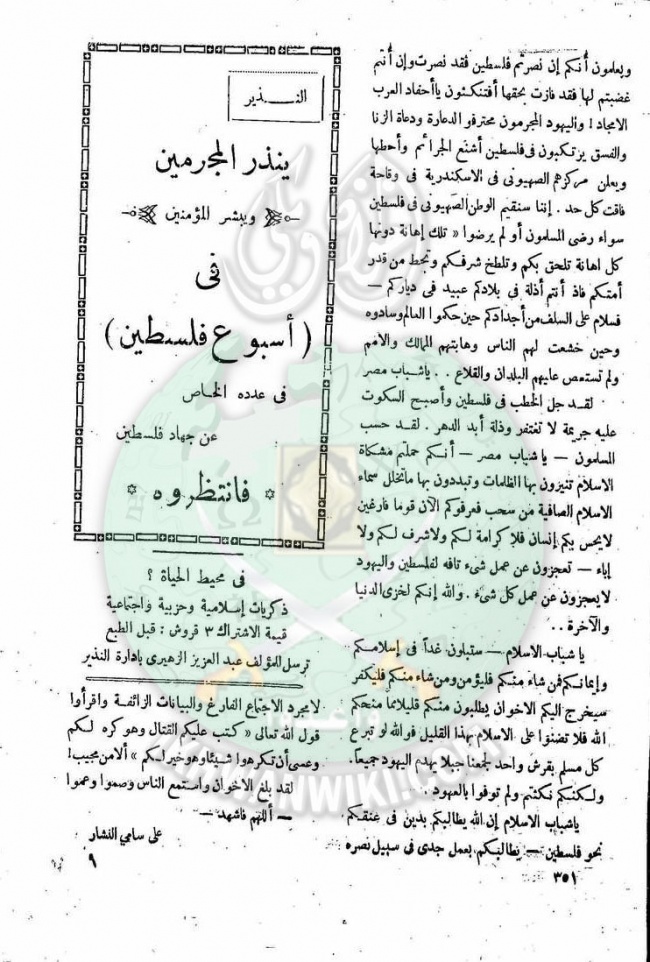 ويعلمون أنكم إن نصرتم فلسطين فقد نصرت وإن أنتم
غضبتم لها فقد فازت بحقها أفتنكثون يا أحفاد العرب
الامجاد! واليهود المجرمون محترفو الدعارة ودعاة الزنا
والفسق يرتكبون فى فلسطين أشنع الجرائم وأحطها
ويعلن مركزهم الصهيونى فى الاسكندرية فى وقاحة
فاقت كل حد. إننا سنقيم الوطن الصهيونى فى فلسطين
سواء رضى المسلمون أو لم يرضوا « تلك إهانة دونها
كل اهانة تلحق بكم وتلطخ شرفكم وتحط من قدر
أمتكم فاذ أنتم أذلة فى بلادكم عبيد فى دياركم —
فسلام على السلف من أجدادكم حين حكموا العالم وسادوه
وحين خشعت لهم الناس وهابتهم الممالك والامم
ولم تستعص عليهم البلدان والقلاع . . ياشباب مصر
لقد جل الخطب فى فلسطين وأصبح السكوت
عليه جريمة لا تغتفر وذلة أبد الدهر . لقد حسب
المسلمون — ياشباب مصر — أنكم حملتم مشكاة
الاسلام تنيرون بها الظلمات وتبددون بها ماتخلل سماء
الاسلام الصافية من سحب فعرفوكم الآن قوما فارغين
لايحس بكم إنسان فلا كرامة لكم ولا شرف لكم ولا
إباء — تعجزون عن عمل شىء تافه لفلسطين واليهود
لايعجزون عن عمل كل شىء . والله إنكم لخزى الدنيا
والآخرة . .
يا شباب الاسلام — ستبلون غداً فى إسلامكم
وإيمانكم فمن شاء منكم فليؤمن ومن شاء منكم فليكفر
سيخرج اليكم الاخوان يطلبون منكم قليلا مما منحكم
الله فلا تضنوا على الاسلام بهذا القليل فوالله لو تبرع
كل مسلم بقرش واحد لجمعنا جبلا يهدم اليهود جميعاً.
ولكنكم نكثتم ولم توفوا بالعهود .
ياشباب الاسلام إن الله يطالبكم بدين فى عنقكم
نحو فلسطين — يطالبكم بعمل جدى فى سبيل نصره
٣٥١
النـــذير
ينذر المجرمين
ويبشر المؤمنين
فى
( أسبوع فلسطين )
فى عدده الخاص
عن جهاد فلسطين
* فانتظروه *
فى محيط الحياة ؟
ذكريات إسلامية وحزبية واجتماعية
قيمة الاشتراك ٣ قروش : قبل الطبع
ترسل للمؤلف عبد العزيز الزهيرى بادارة النذير
لا مجرد الاجتماع الفارغ والبيانات الزائفة واقرأوا
قول الله تعالى « كتب عليكم القتال وهو كره لكم
وعسى أن تكرهوا شيئا وهو خير لكم » ألا من مجيب!
لقد بلغ الاخوان واستمع الناس وصموا وعموا
— أللهم فاشهد —
على سامي النشار
٩
واعدوا
IKHWANWIKI.COM